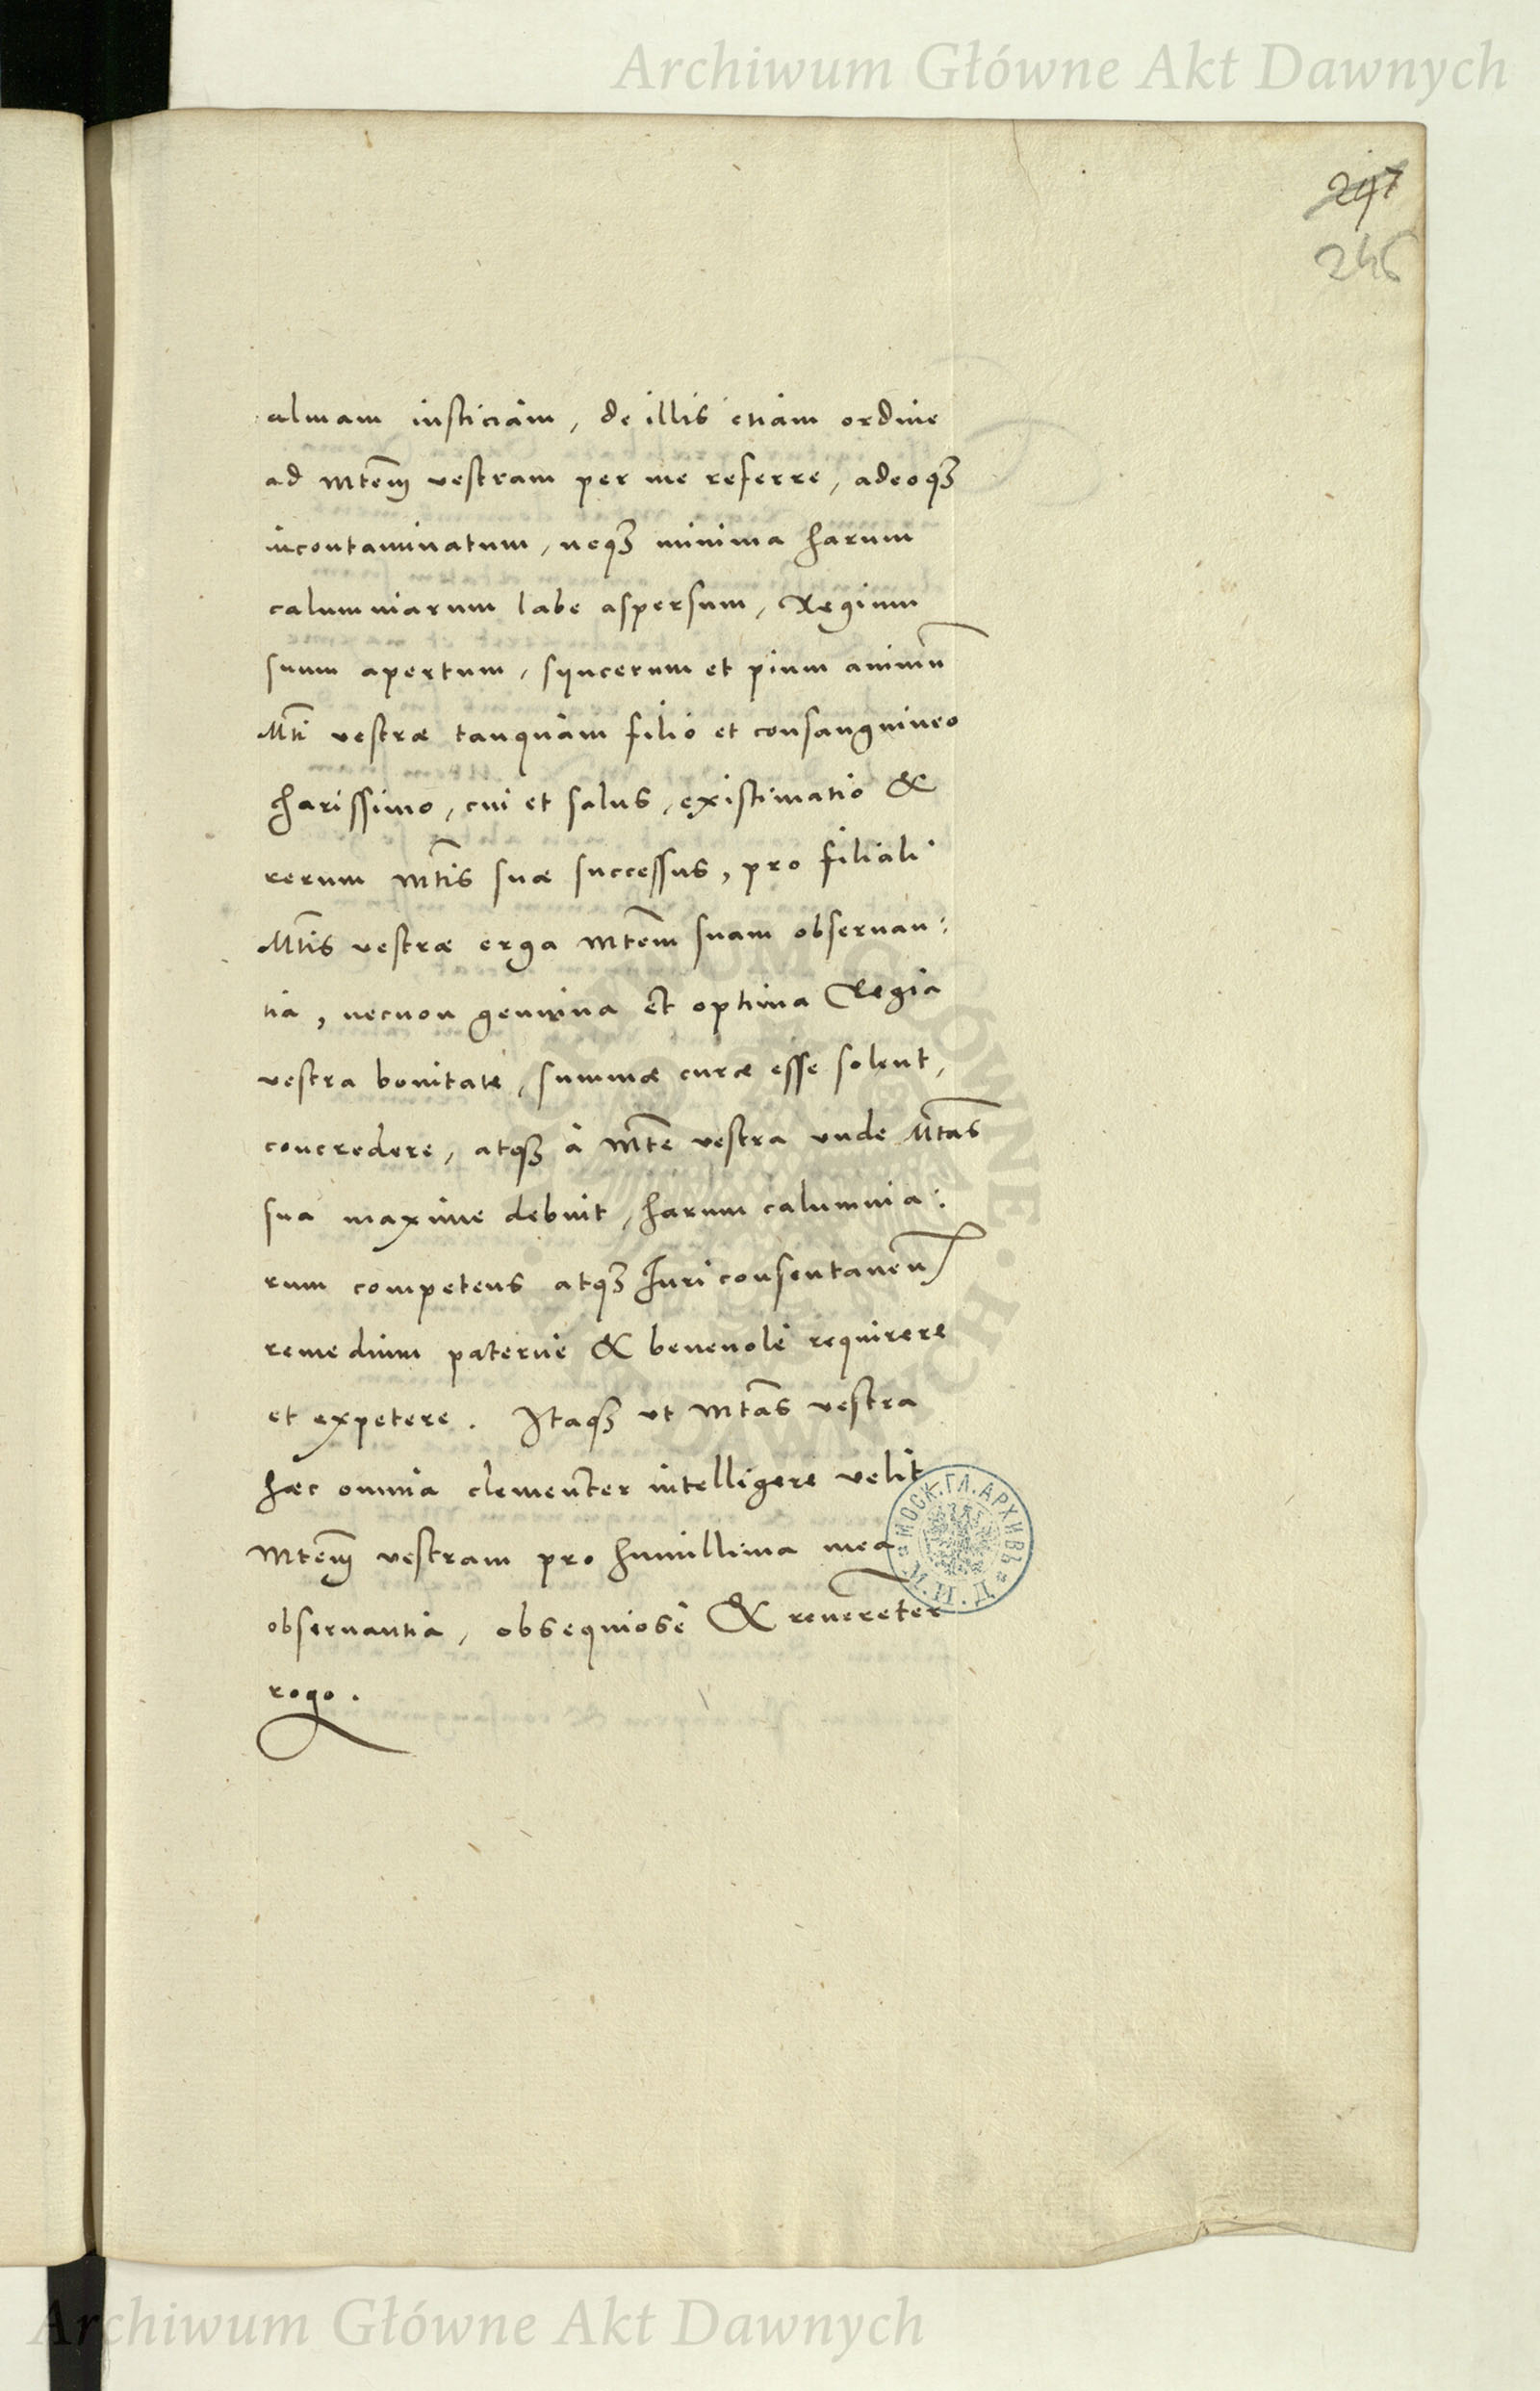 Archiwum Główne Akt Dawnych
247
246
almam iusticiam, de illis etiam ordine
ad Mtem vestram per me referre, adeoq3
incontaminatum, neq3 minima harum
calumniarum labe aspersum, Regium
suum apertum, syncerum et pium animū
Mti vestræ tanquam filio et consanguineo
charissimo, cui et salus, existimatio &
rerum Mtis suæ successus, pro filiali
Mtis vestræ erga Mtem suam obseruan:
tia, necnon genuina et optima Regia
vestra bonitate, summæ curæ esse solent,
concredere, atq3 à Mte vestra vnde Mtas
sua maxime debuit, harum calumnia:
rum competens atq3 Iuri consentaneū
remedium paterne & beneuole requirere
et expetere. Itaq3 vt Mtas vestra
hæc omnia clementer intelligere velit
Mtem vestram pro humillima mea
obseruantia, obsequiose & reuerēter
rogo.
МОСК. ГЛ. АРХИВЪ
ARCHIWUM GŁÓWNE AKT DAWNYCH
Archiwum Główne Akt Dawnych